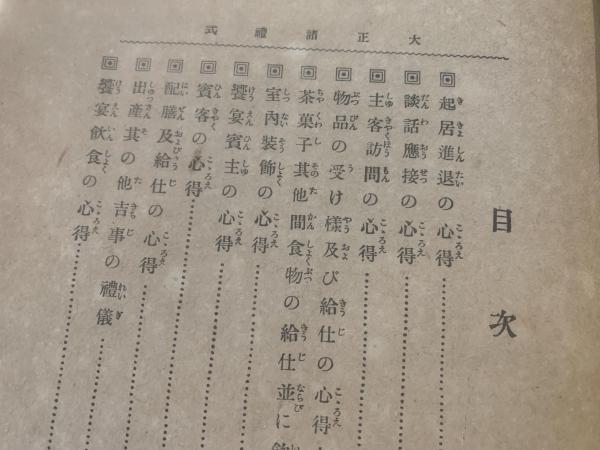 大正諸禮式
目次
起居進退の心得
談話應接の心得
主客訪問の心得
物品の受け樣及び給仕の心得
茶菓子其他間食物の給仕並に
室內裝飾の心得
饗宴賓主の心得
賓客の心得
配膳及給仕の心得
出產其の他吉事の禮儀
饗宴飮食の心得